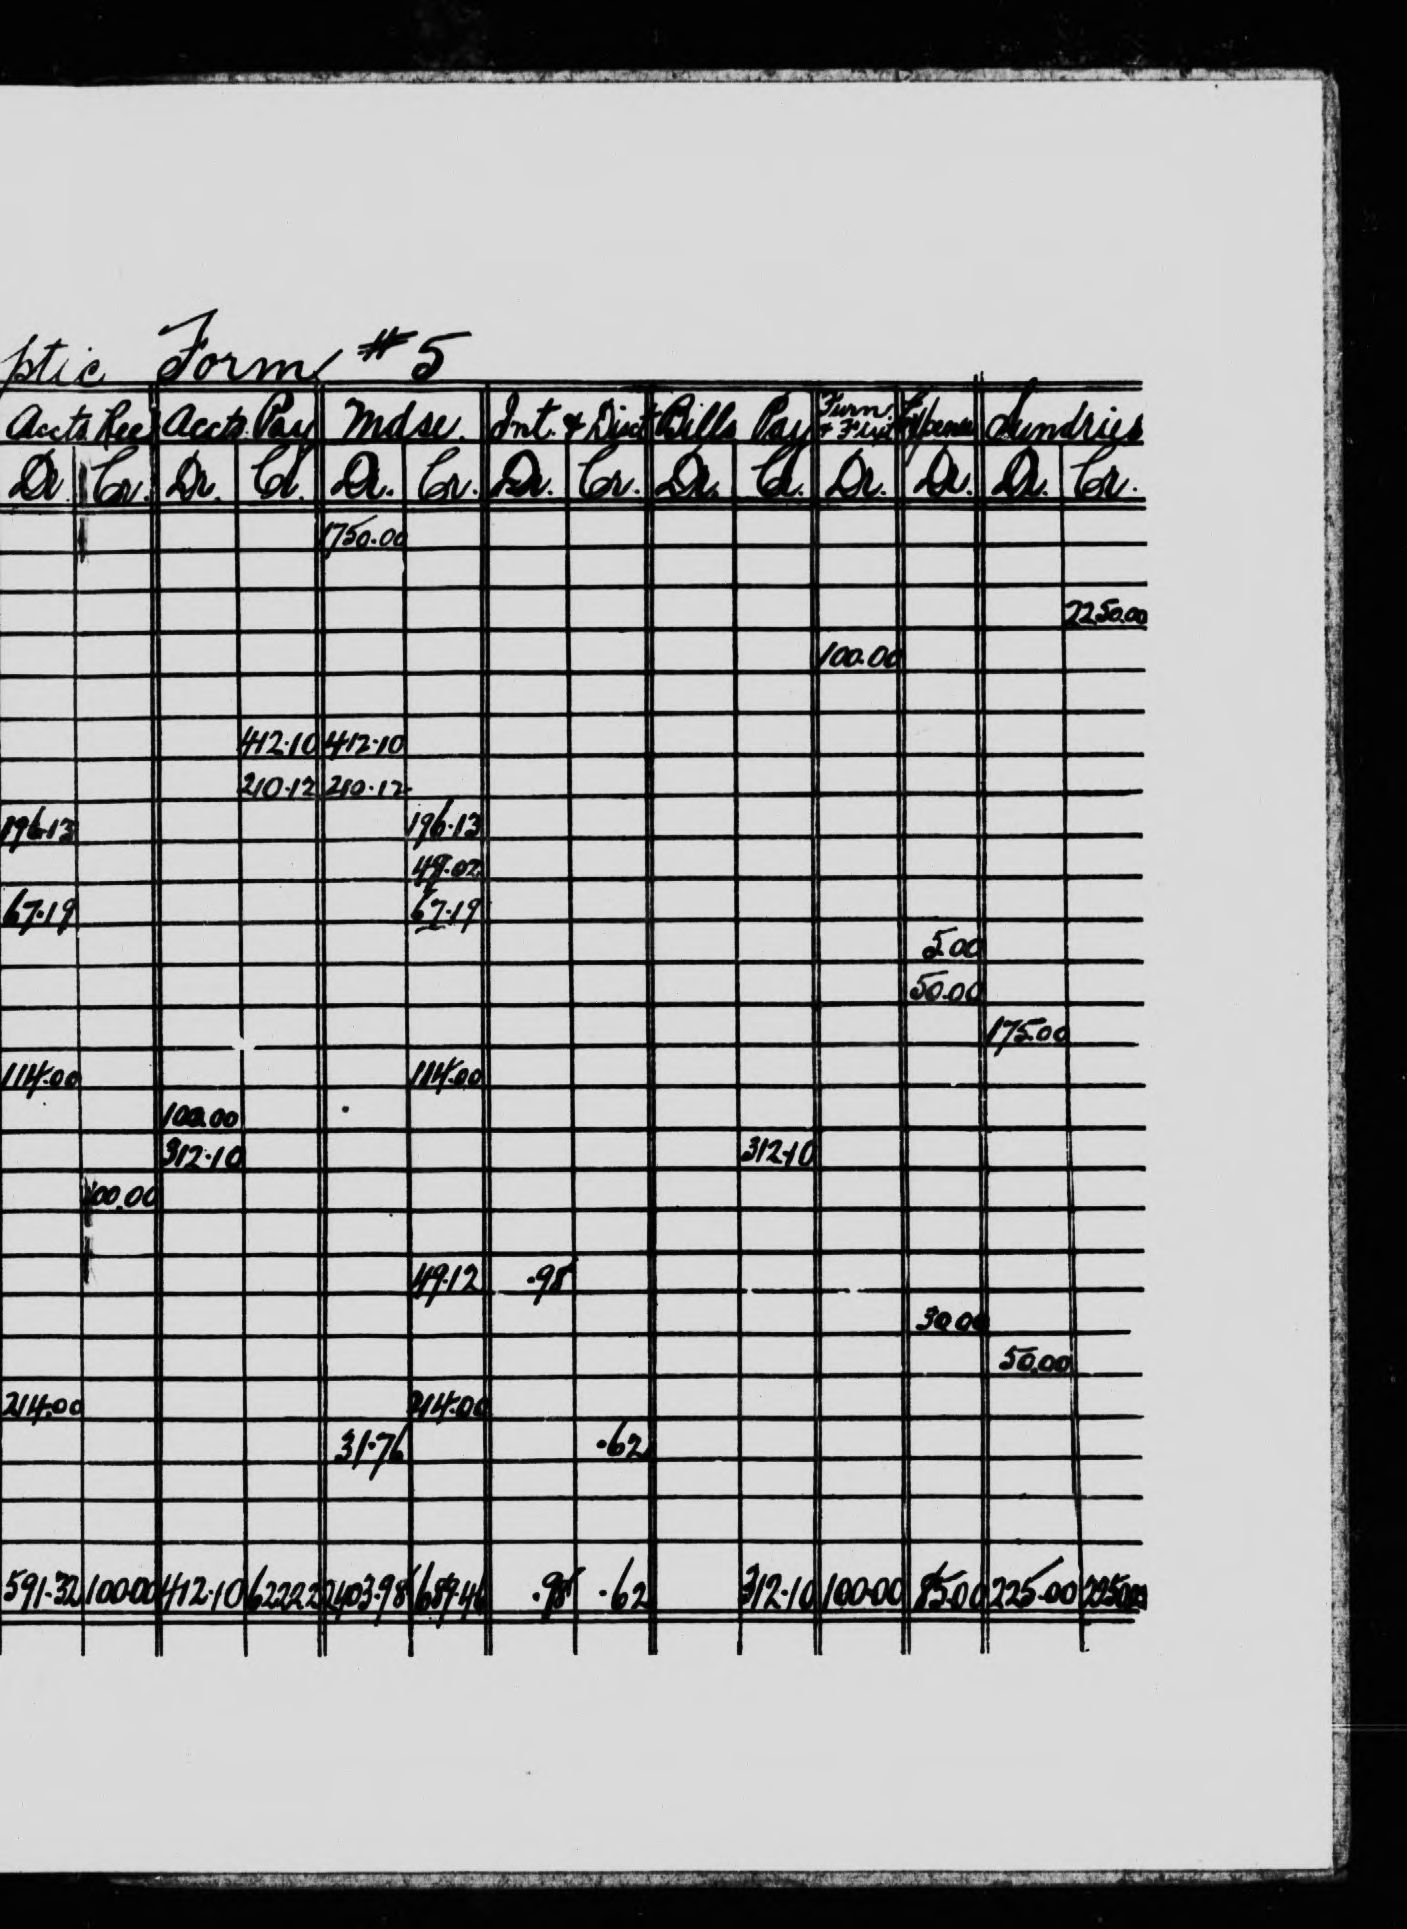 ptic Form #5
Accts Rec Accts. Pay Mdse. Int. & Disct Bills Pay Furn. & Fixt Expense Sundries
Dr. Cr. Dr. Cr. Dr. Cr. Dr. Cr. Dr. Cr. Dr. Dr. Dr. Cr.
1750.00
2250.00
100.00
412.10 412.10
210.12 210.12
196.13 196.13
49.02
67.19 67.19
5.00
50.00
175.00
114.00 114.00
100.00
312.10 312.10
100.00
49.12 .98
30.00
50.00
214.00 214.00
31.76 .62
591.32 100.00 412.10 622.22 2403.98 689.46 .98 .62 312.10 100.00 85.00 225.00 2250.00